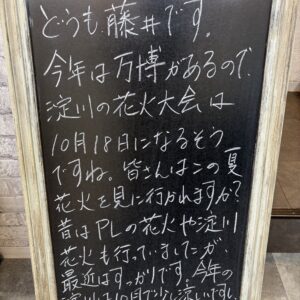 どうも藤井です。
今年は万博があるので、
淀川の花火大会は
10月18日になるそう
ですね。皆さんはこの夏
花火を見に行かれますか?
昔はPLの花火や淀川
花火も行っていましたが、
最近はすっかりです。今年の
淀川は10月で少し涼しいですし